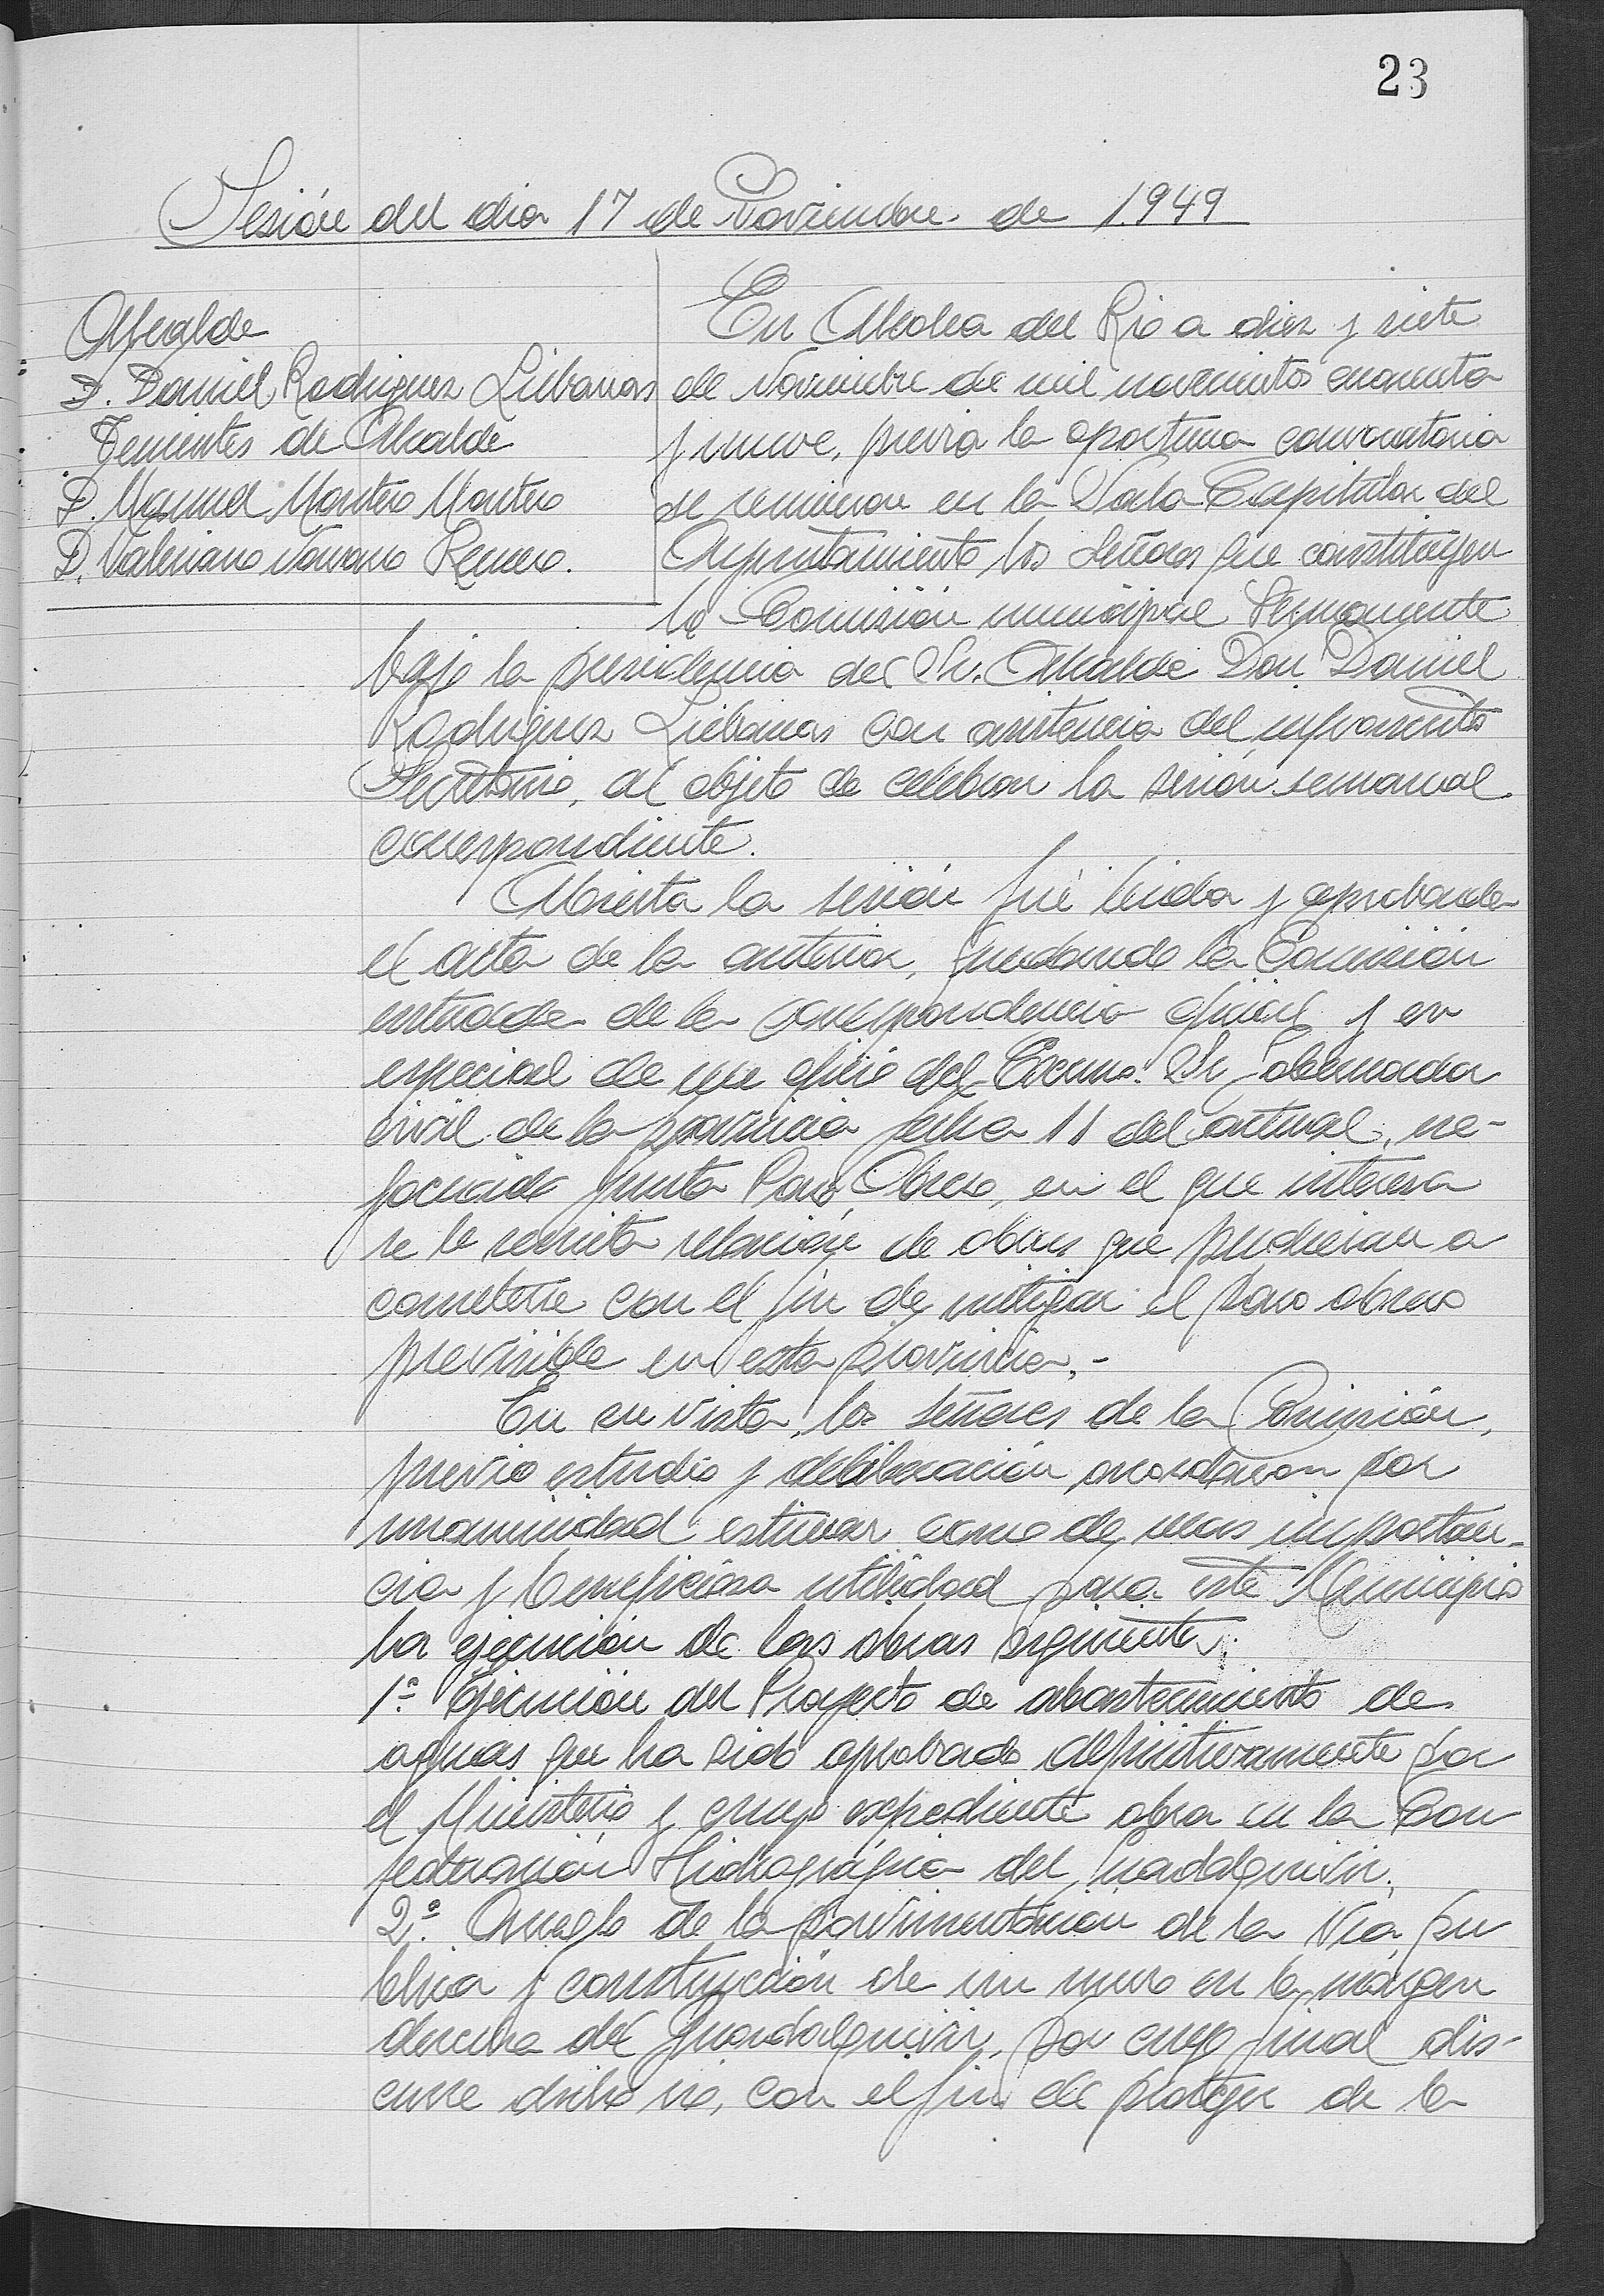 23
Sesión del dia 17 de Noviembre de 1949
Alcalde
D. Daniel Rodriguez Liebanas
Tenientes de Alcalde
D. Manuel Montero Montero
D. Valeriano Navarro Romero.
En Alcolea del Rio a diez y siete
de Noviembre de mil novecientos cuarenta
y nueve, previa la oportuna convocatoria
se reunieron en la Sala Capitular del
Ayuntamiento los señores que constituyen
la Comisión municipal Permanente
bajo la presidencia del Sr. Alcalde Don Daniel
Rodriguez Liebanas con asistencia del infrascrito
Secretario, al objeto de celebrar la sesión semanal
correspondiente.
Abierta la sesión fué leida y aprobada
el acta de la anterior, quedando la Comisión
enterada de la correspondencia oficial y en
especial de un oficio del Excmo. Sr. Gobernador
civil de la provincia fecha 11 del actual, ne-
gociado Junta Paro Obrero, en el que interesa
se le remita relación de obras que pudieran a
cometerse con el fin de mitigar el paro obrero
previsible en esta provincia.-
En su vista, los señores de la Comisión,
previo estudio y deliberación acordaron por
unanimidad estimar como de mas importan-
cia y beneficiosa utilidad para este Municipio
la ejecución de las obras siguientes:
1º. Ejecución del Proyecto de abastecimiento de
aguas que ha sido aprobado definitivamente por
el Ministerio y cuyo expediente obra en la Con
federación Hidrográfica del Guadalquivir.
2º. Arreglo de la pavimentación de la via pu
blica y construcción de un muro en la margen
derecha del Guadalquivir, por cuyo final dis-
curre dicho rio, con el fin de proteger de la